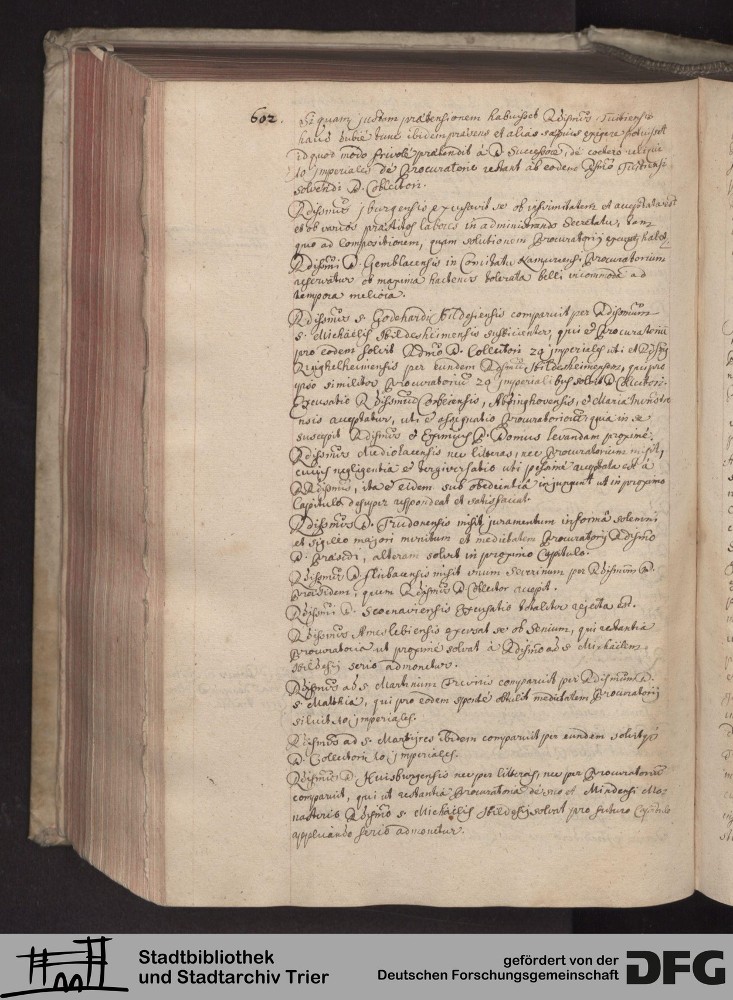 602.
quam justam praetensionem habuisset Rdissimus Tuitiensis
haud dubie tunc ibidem praesens et alias saepius exigere potuisset
id quod modo frivole praetendit à D. Successore, de coetero
10 imperiales de Procuratorie restant ab eodem Rdissimo Tuitiensi
solvendi D. Collectori.
Rdissimus Iburgensis excusavit se ob infirmitatem et acceptata est
et ob varios praestitos labores in administrando Secretariatu, tam
quo ad Compositionem, quam solutionem Procuratorij
Rdissimi D. Gemblacensis in Comitatu Procuratorium
reservatur ob maxima hactenus tolerata belli incommoda ad
tempora meliora.
Rdissimus S. Godehardi Hildesiensis comparuit per Rdissimum
S. Michaëlis Hildesheimensis sufficienter, qui & Procuratorium
pro eodem solvit Rdmo D. Collectori 20 imperiales uti et Rdissimus
Ringhelheimensis per eundem Rdissimum Hildesheimensem, qui pro
ipso similiter Procuratorium 20 imperialibus solvit D. Collectori.
Excusatio Rdissimi Corbeiensis, Abdinghovensis, & Mariae Munste
riensis acceptatur, uti & assignatio Procuratoriorum quia in se
suscepit Rdissimus & Eximius P. Domus levandam proximè.
Rdissimus Mediolacensis nec litteras, nec Procuratorium misit,
cuius negligentia & tergiversatio uti pessimè acceptata est à
RRdissimis, ita & eidem sub obedientia injungitur ut in proximo
Capitulo desuper respondeat et satisfaciat.
Rdissimus D. Trudonensis misit juramentum in forma solemni
et sigillo majori munitum et medietatem Procuratorij Rdissimo
D. Praesidi, alteram solvet in proximo Capitulo.
Rdissimus D. misit unum Severinum per Rdissimum D.
Praesidem, quem Rdissimus D. Collector accepit.
Rdissimi D. Scoenaviensis Excusatio totaliter rejecta est.
Rdissimus Ameslebiensis excusat se ob Senium, qui restantia
Procuratoria ut proximè solvat à Rdissimo ad S. Michaëlem
Hildesij seriò admonetur.
Rdissimus ad S. Martinum Treviris comparuit per Rdissimum D.
S. Matthiae, qui pro eodem sponte obtulit medietatem Procuratorij
silicet 10 imperiales.
Rdissimus ad S. Martyres ibidem comparuit per eundem
D. Collectori 10 imperiales.
Rdissimus D. Huisburgensis nec per litteras, nec per Procuratorem
comparuit, qui ut restantia Procuratoria de suo et Mindensi Mo-
nasterio Rdissimo S. Michaëlis Hildesij solvat pro futuro Capitulo
seriò admonetur.
Stadtbibliothek
und Stadtarchiv Trier
gefördert von der
Deutschen Forschungsgemeinschaft
DFG